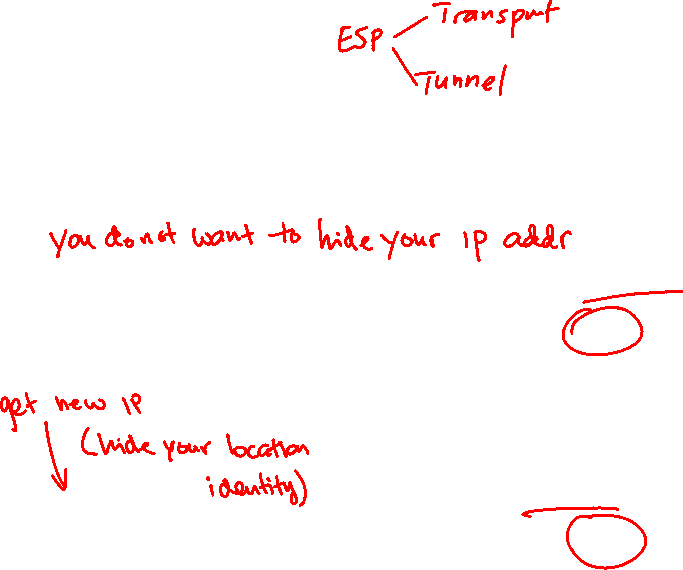 Transport
ESP
Tunnel
you do not want to hide your IP addr
get new IP
(hide your location
identity)